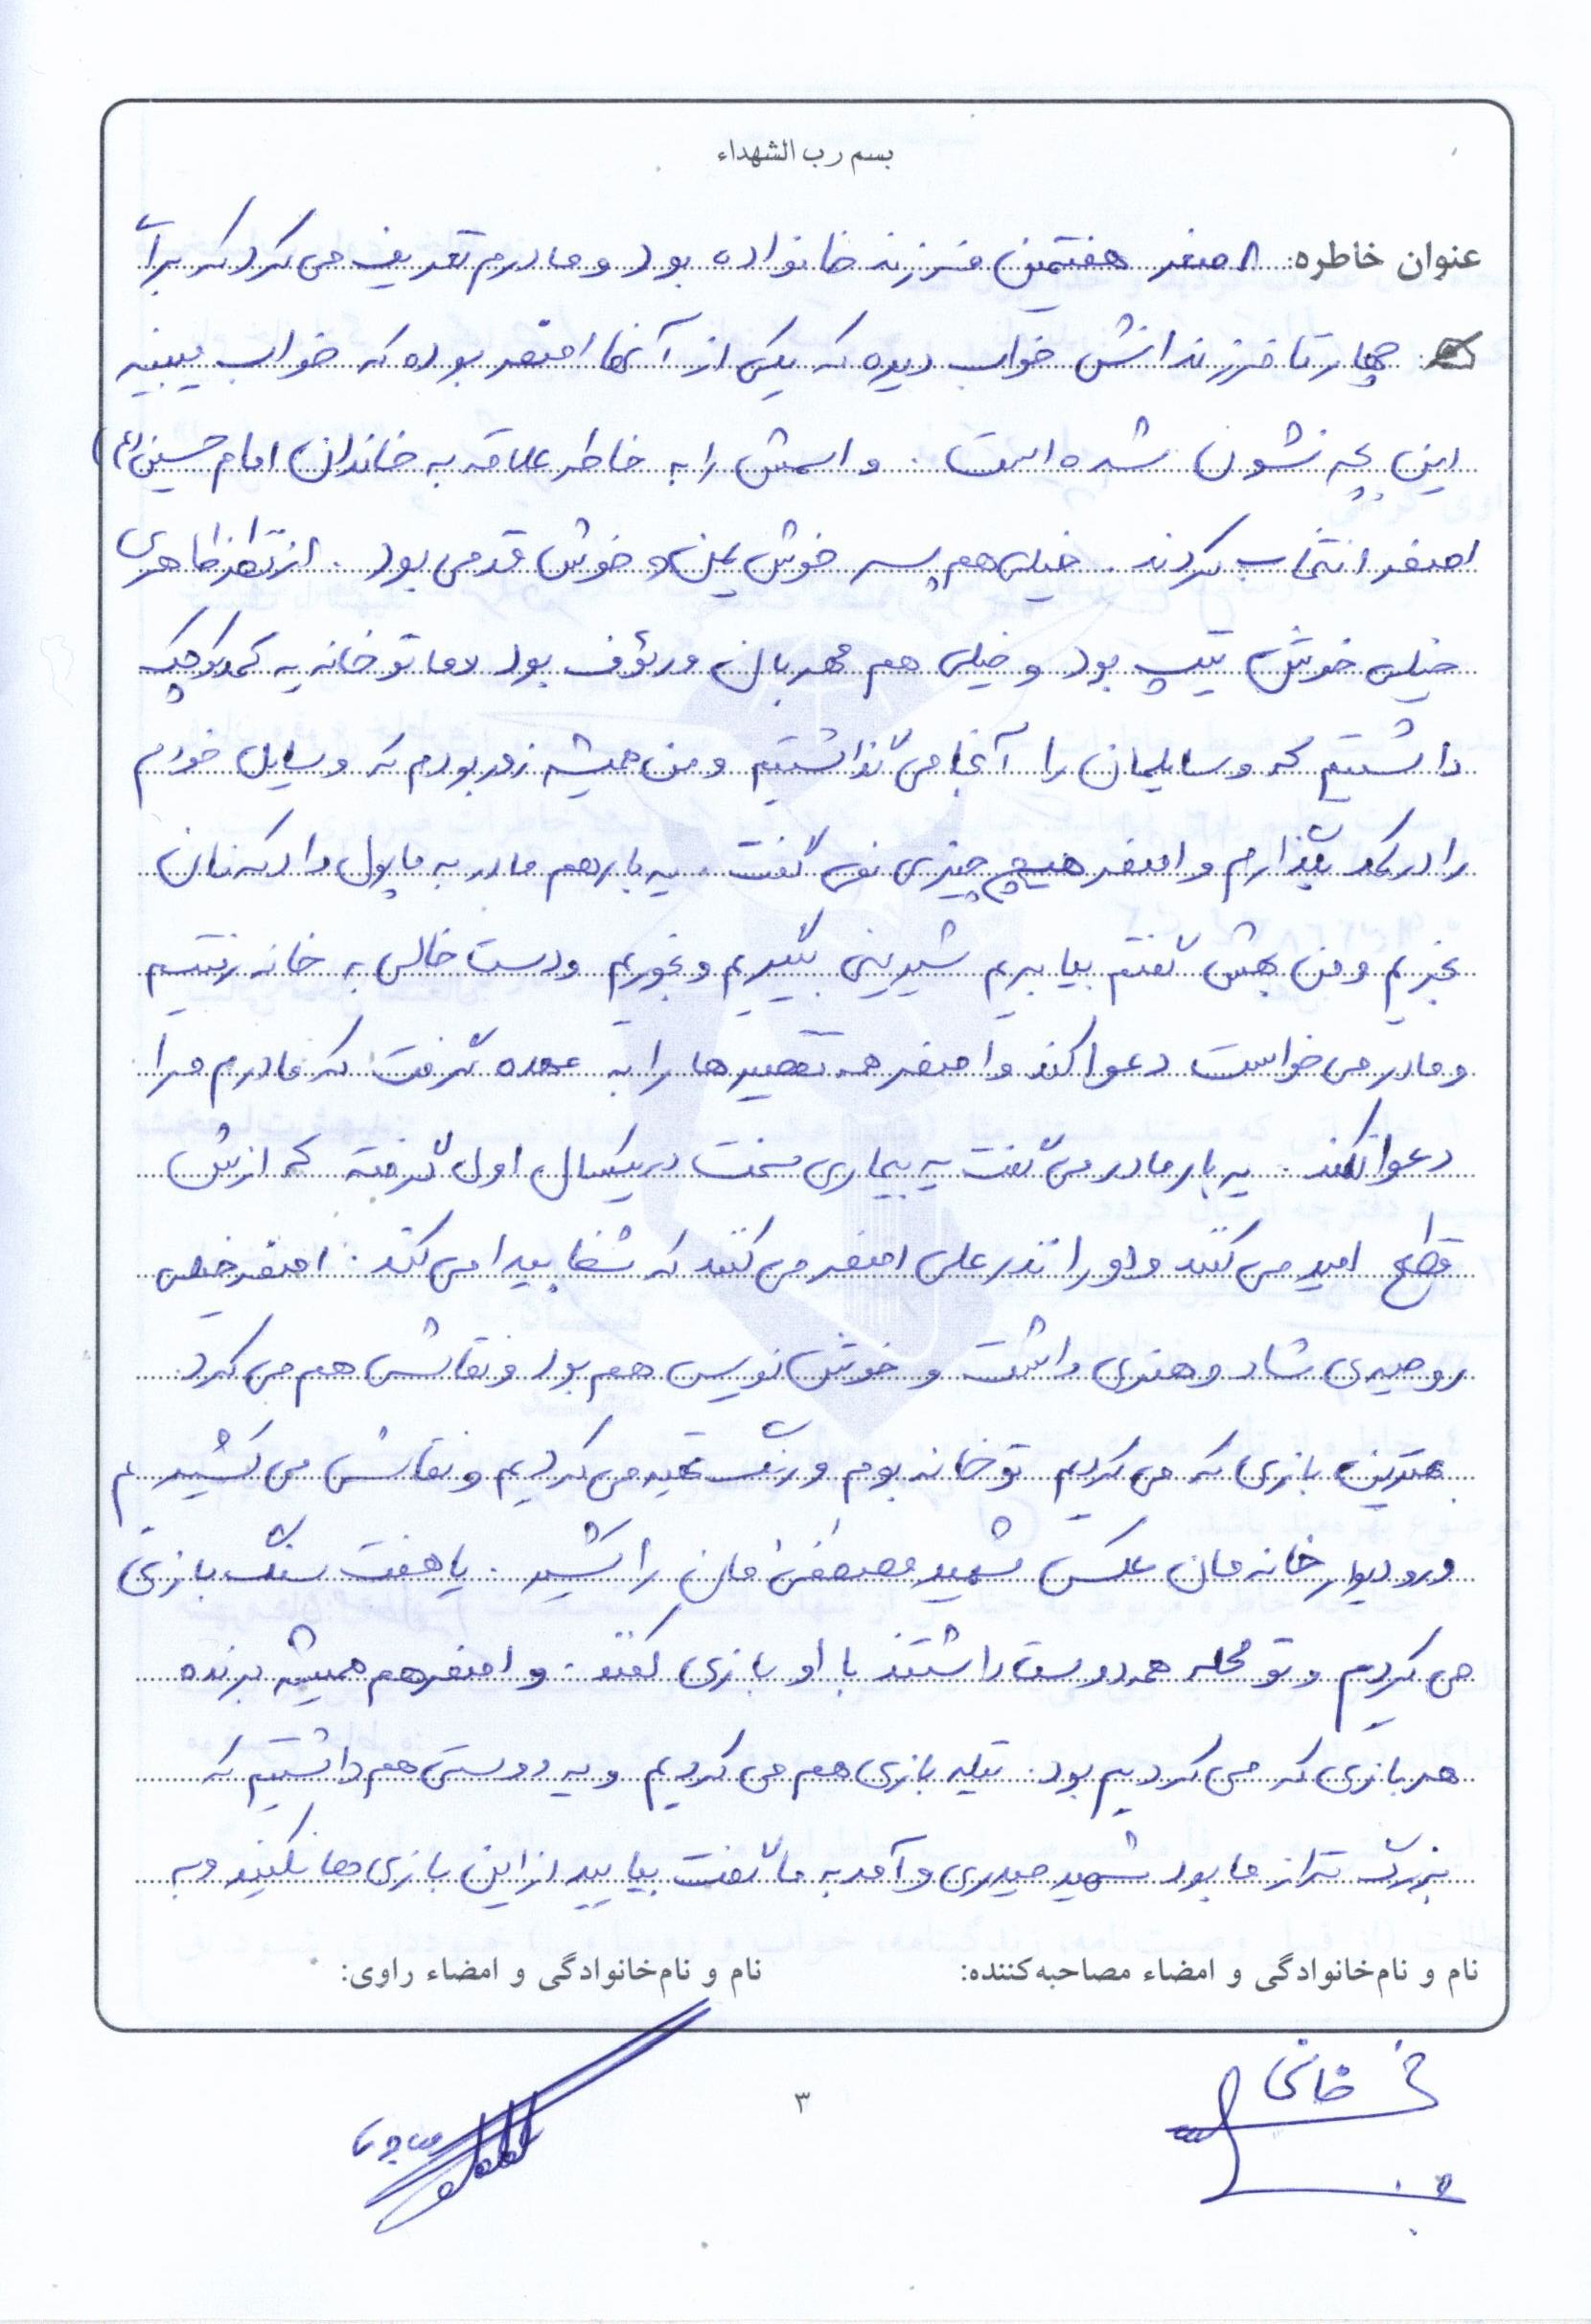 بسم رب الشهداء
عنوان خاطره: اصغر هفتمین فرزند خانواده بود و مادرم تعریف می کرد که برا
چهار تا فرزندانش خواب دیده که یکی از آنها اصغر بوده که خواب میبینه
این بچه نشون شده است. و اسمش را به خاطر علاقه به خاندان امام حسین (ع)
اصغر انتخاب کردند. خیلی هم پسر خوش یمن و خوش قدمی بود. از نظر ظاهری
خیلی خوش تیپ بود و خیلی هم مهربان و رئوف بود و ما تو خانه یه کمد کوچک
داشتیم که وسایلمان را آنجا می گذاشتیم و من همیشه زور بودم که وسایل خودم
را در کمد بگذارم و اصغر هیچ چیزی نمی گفت. یه بار هم مادر به ما پول داد که نان
بخریم و من بهش گفتم بیا بریم شیرینی بگیریم و بخوریم و دست خالی به خانه رفتیم
و مادر می خواست دعوا کند و اصغر همه تقصیرها را به عهده گرفت که مادرم مرا
دعوا نکند. یه بار مادر می گفت یه بیماری سخت در یکسال اول گرفته که ازش
قطع امید می کنند و او را نذر علی اصغر می کنند که شفا پیدا می کند. اصغر خیلی
روحیه‌ی شاد و هنری داشت و خوش نویس هم بود و نقاشی هم می کرد.
بهترین بازی که می کردیم تو خانه بوم و رنگ تهیه می کردیم و نقاشی می کشیدیم
و رو دیوار خانه مان عکس شهید مصطفی مان را کشید. یا هفت سنگ بازی
می کردیم و تو محله همه دوست داشتند با او بازی کنند. و اصغر هم همیشه برنده
هر بازی که می کردیم بود. تیله بازی هم می کردیم و یه دوستی هم داشتیم که
بزرگ تر از ما بود شهید حیدری و آمد به ما گفت بیایید از این بازی ها نکنید و به
نام و نام‌خانوادگی و امضاء مصاحبه‌کننده: نام و نام‌خانوادگی و امضاء راوی:
۳